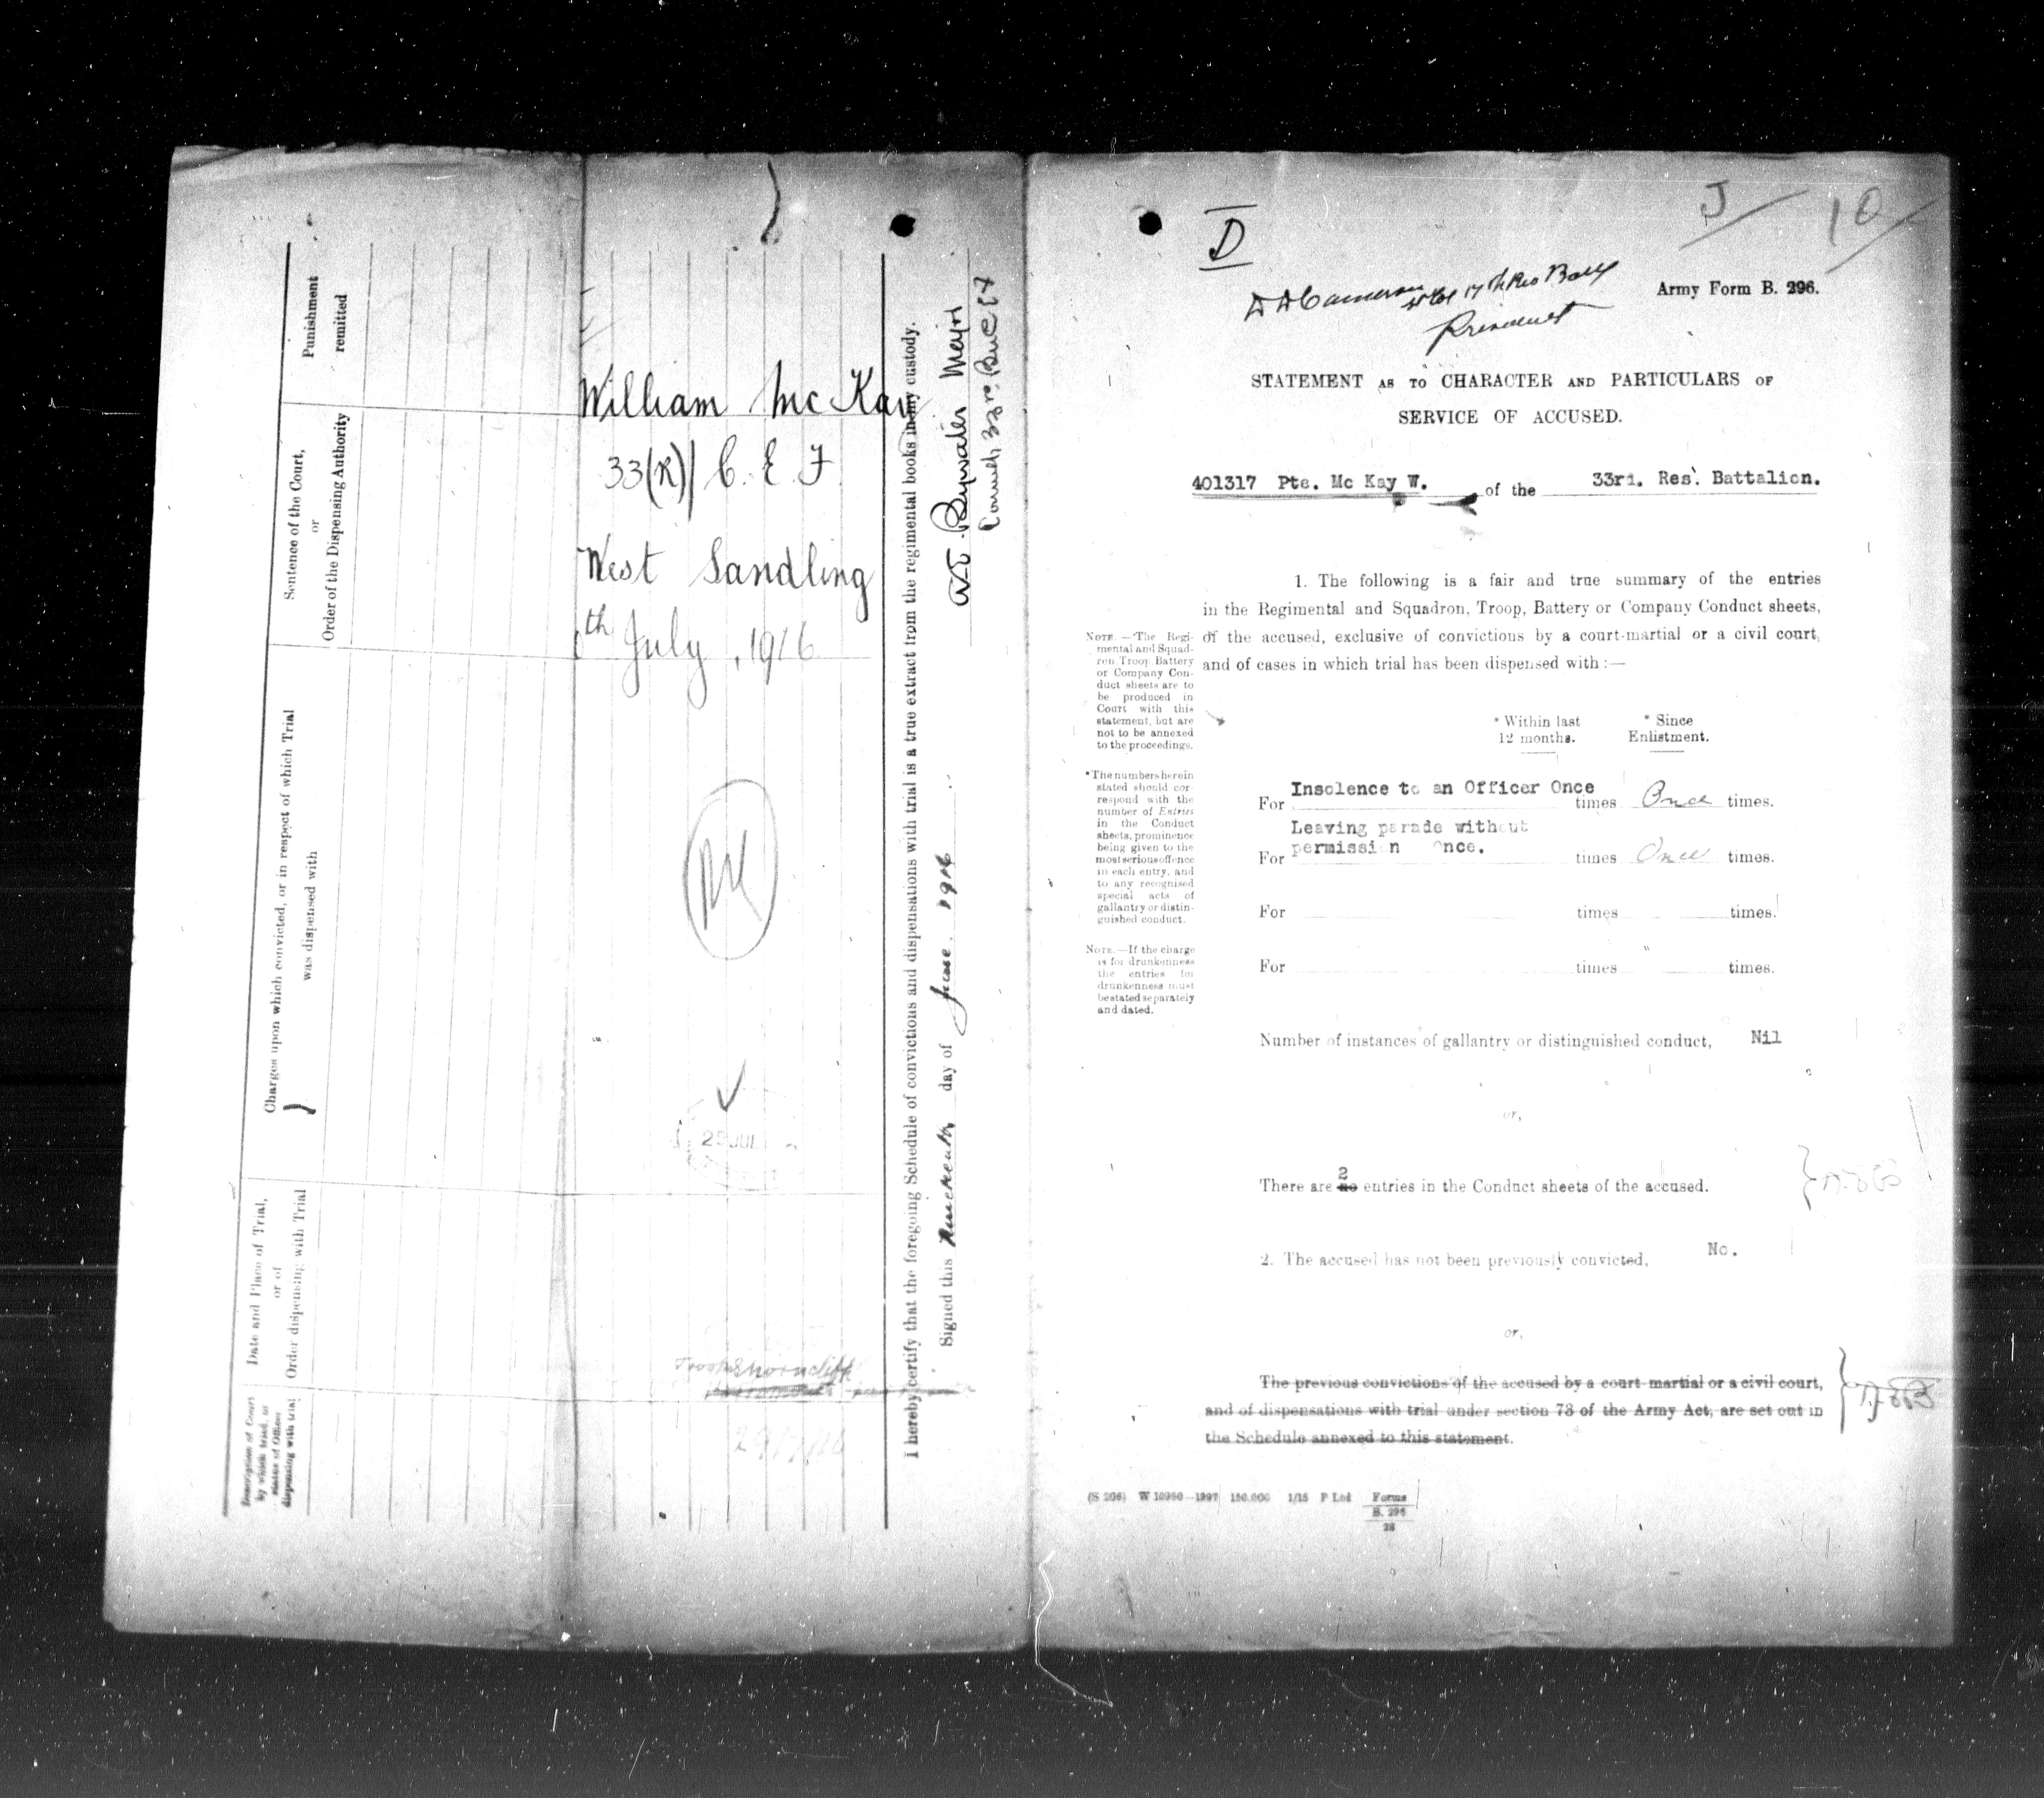 Punishment
remitted
Sentence of the Court,
or
Order of the Dispensing Authority
Charges upon which convicted, or in respect of which Trial
was dispensed with
Date and Place of Trial,
or of
Order dispensing with Trial
Description of Court
by which tried, or
dispensing with trial
William Mc Kay
33(R)/ C. E. F
West Sandling
th July, 1916
25 JUL
I hereby certify that the foregoing Schedule of convictions and dispensations with trial is a true extract from the regimental books in my custody.
Signed this day of June 1916
Major
D
J/
10/
Cameron
President
Army Form B. 296.
STATEMENT AS TO CHARACTER AND PARTICULARS OF
SERVICE OF ACCUSED.
401317 Pte. Mc Kay W. of the 33rd. Res. Battalion.
1. The following is a fair and true summary of the entries
in the Regimental and Squadron, Troop, Battery or Company Conduct sheets,
of the accused, exclusive of convictions by a court-martial or a civil court,
and of cases in which trial has been dispensed with :—
NOTE.—The Regi-
mental and Squad-
ron, Troop, Battery
or Company Con-
duct sheets are to
be produced in
Court with this
statement, but are
not to be annexed
to the proceedings.
* Within last
12 months.
* Since
Enlistment.
*The numbers herein
stated should cor-
respond with the
number of Entries
in the Conduct
sheets, prominence
being given to the
most serious offence
in each entry, and
to any recognised
special acts of
gallantry or distin-
guished conduct.
NOTE.—If the charge
is for drunkenness
the entries for
drunkenness must
be stated separately
and dated.
For Insolence to an Officer Once times Once times.
Leaving parade without
For permission Once. times Once times.
For times times.
For times times.
Number of instances of gallantry or distinguished conduct, Nil
or,
2
There are no entries in the Conduct sheets of the accused.
2. The accused has not been previously convicted, No.
or,
The previous convictions of the accused by a court-martial or a civil court,
and of dispensations with trial under section 73 of the Army Act, are set out in
the Schedule annexed to this statement.
(S 206) W 10960—1397 150,000 1/15 P Ltd Forms
B. 296
28